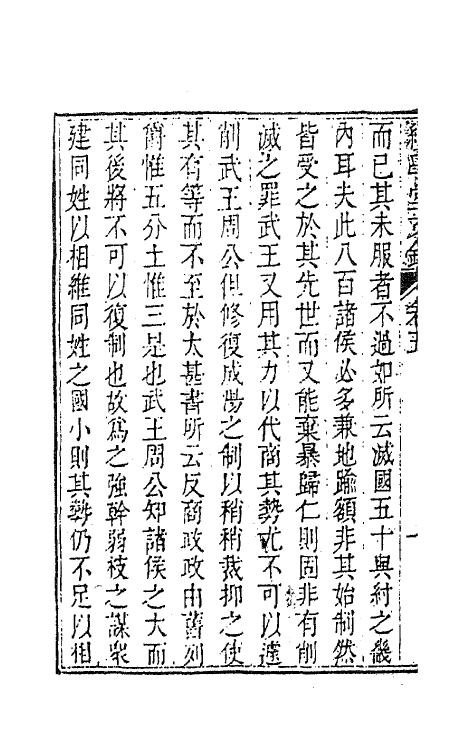 卷五
而已其未服者不過如所云滅國五十與紂之畿
內耳夫此八百諸侯必多兼地踰額非其始制然
皆受之於其先世而又能棄暴歸仁則固非有削
滅之罪武王又用其力以代商其勢尤不可以遽
削武王周公但修復成湯之制以稍稍裁抑之使
其有等而不至於太甚書所云反商政政由舊列
爵惟五分土惟三是也武王周公知諸侯之大而
其後將不可以復制也故爲之強幹弱枝之謀衆
建同姓以相維同姓之國小則其勢仍不足以相